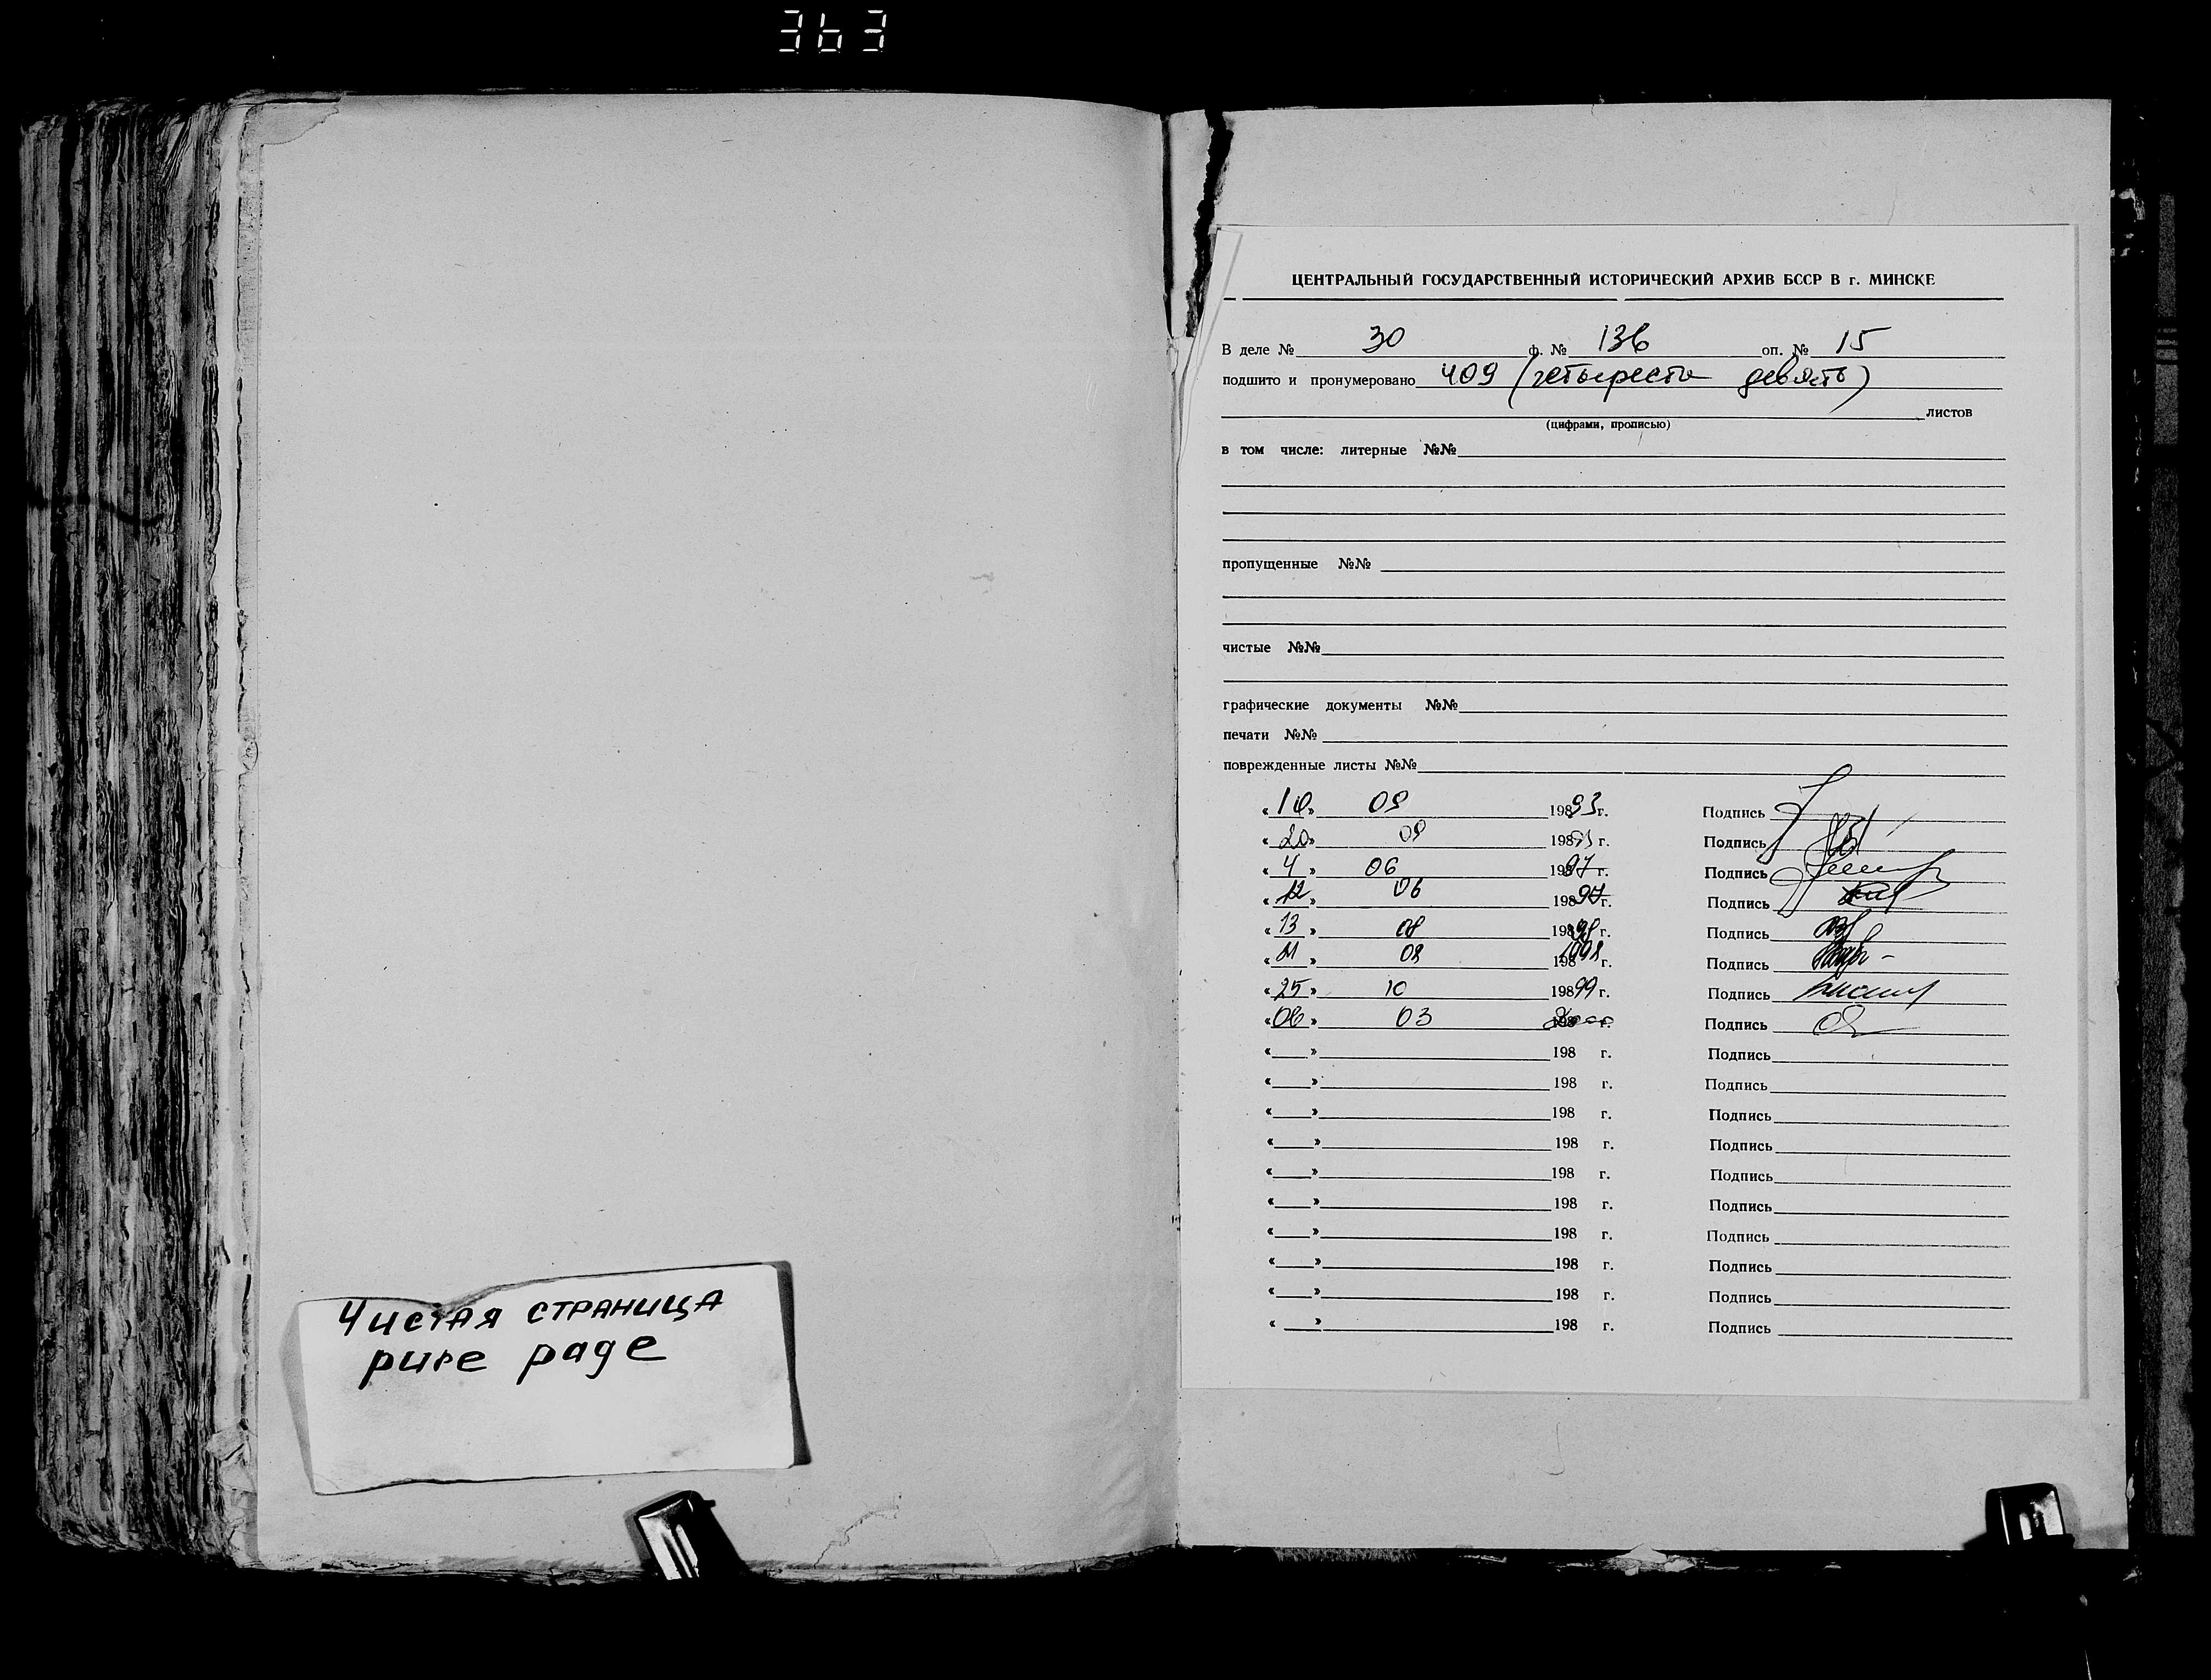 363
Чистая страница
pure page
ЦЕНТРАЛЬНЫЙ ГОСУДАРСТВЕННЫЙ ИСТОРИЧЕСКИЙ АРХИВ БССР В г. МИНСКЕ
В деле № 30 ф. № 136 оп. № 15
подшито и пронумеровано 409 (четыреста девять)
листов
(цифрами, прописью)
в том числе: литерные №№
пропущенные №№
чистые №№
графические документы №№
печати №№
поврежденные листы №№
«10» 09 19893 г. Подпись
«20» 09 198 г. Подпись
«4» 06 1997 г. Подпись
«12» 06 19897 г. Подпись
«13» 08 19898 г. Подпись
« » 08 1998 г. Подпись
«25» 10 19899 г. Подпись
«06» 03 2000 г. Подпись
« » 198 г. Подпись
« » 198 г. Подпись
« » 198 г. Подпись
« » 198 г. Подпись
« » 198 г. Подпись
« » 198 г. Подпись
« » 198 г. Подпись
« » 198 г. Подпись
« » 198 г. Подпись
« » 198 г. Подпись